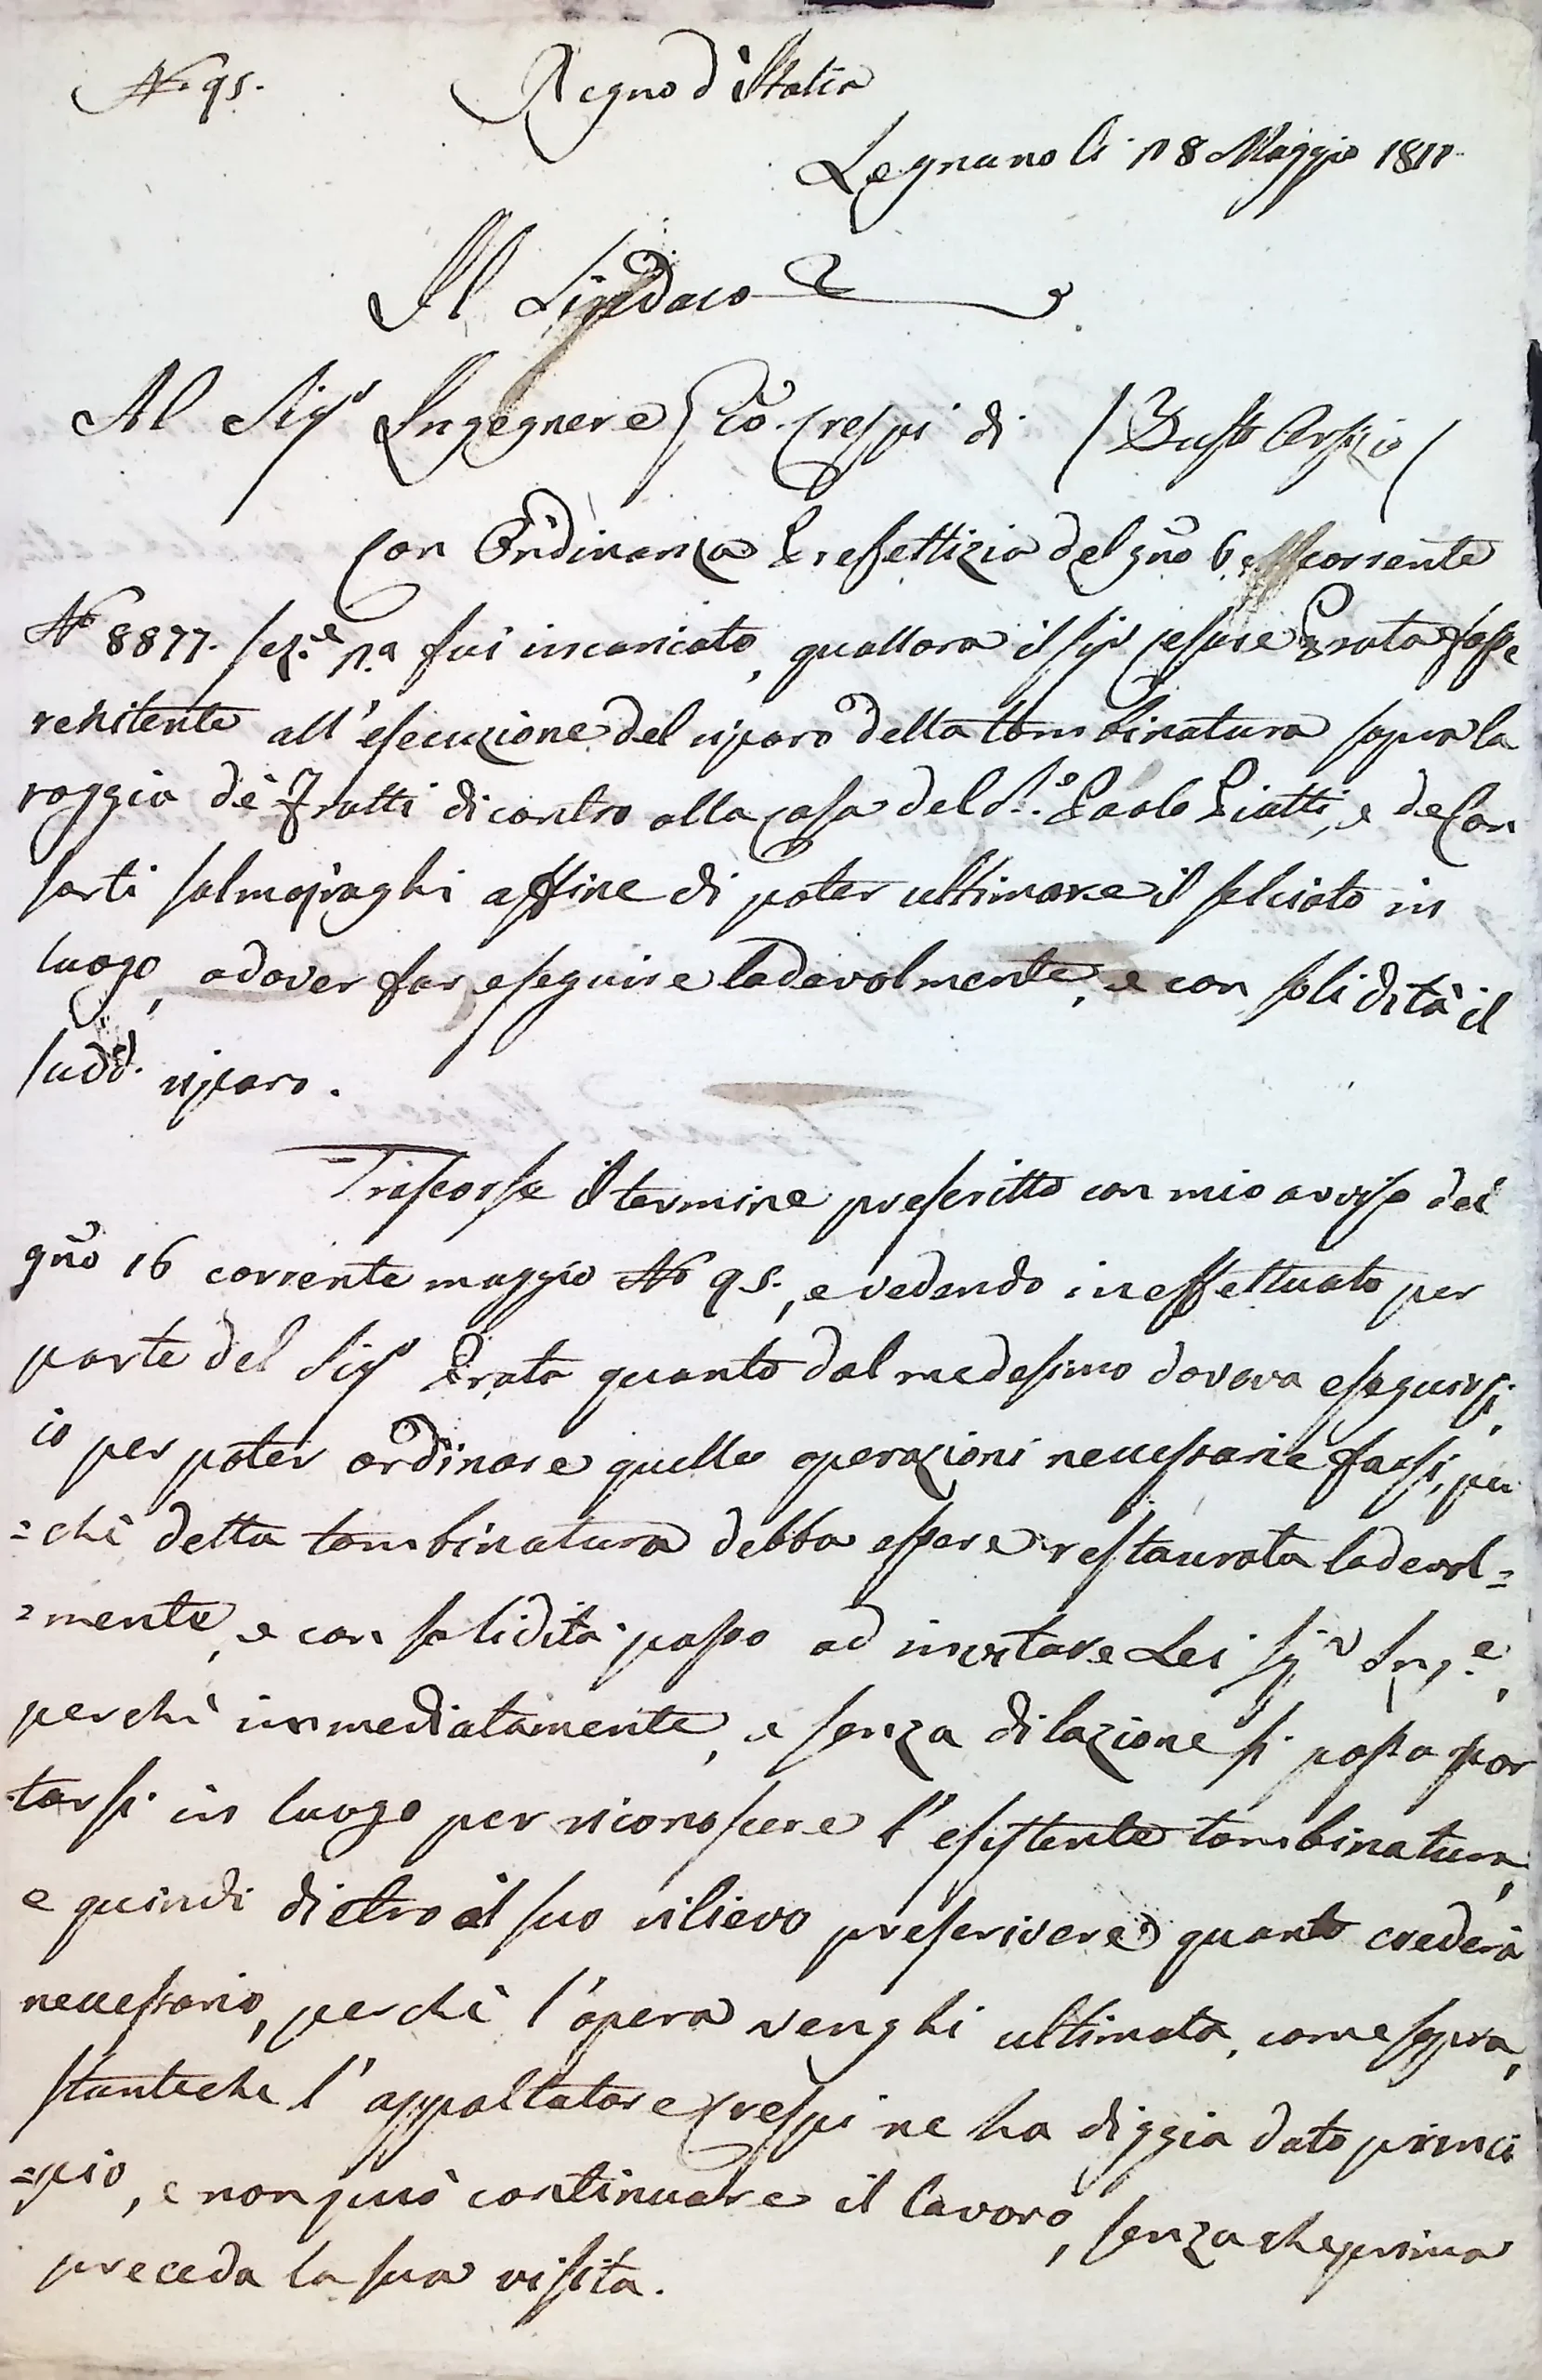 N.º 95.
Regno d'Italia
Legnano li 18 Maggio 1811
Il Sindaco
Al Sig.r Ingegnere Gio. Crespi di / Busto Arsizio /
Con Ordinanza Prefettizia del gño 6 corrente
Nº 8877. Sez.e 1.a fui incaricato, quallora il Sig.r Cesare Prata fosse
renitente all'esecuzione del riparo della tombinatura sopra la
roggia de' Fratti di contro alla Casa del S.r Paolo Piatti, e de Con
sorti Salmojraghi affine di poter ultimare il selciato in
luogo, a dover far eseguire lodevolmente, e con solidità il
sudd.º riparo.
Trascorso il termine prescritto con mio avviso del
gño 16 corrente maggio Nº 95., e vedendo ineffettuato per
parte del Sig.r Prata quanto dal medesimo doveva eseguirsi,
io per poter ordinare quelle operazioni necessarie farsi, per
=chè detta tombinatura debba essere restaurata lodevol=
=mente, e con solidità passo ad invitare Lei Sig.r Ing.e,
perchè immediatamente, e senza dilazione si possa por
tarsi in luogo per riconoscere l'esistente tombinatura,
e quindi dietro al suo rilievo prescrivere quanto crederà
necessario, perchè l'opera venghi ultimata, come sopra,
stanteche l'appaltatore Crespi ne ha diggia dato princi
=pio, e non può continuare il lavoro, senza che prima
preceda la sua visita.